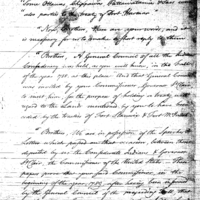 Some Ottawas, Chippawas, Pattawatamies &
also parties to the treaty of Fort Harmar
Now Brothers these are your words, and it is
necessary for us to make a short reply to them
"Brothers, A General Council of all the Indian
Confederacy was held, as you well know, in the Fall
of the year 1788 at this place And that General Council
was invited by your Commissioner Governor St Clair
to meet him for the purpose of holding a treaty with
regard to the Lands mentioned by you to have been
ceded by the treaties of Fort Stanwix & Fort McIntosh
"Brothers, We are in possession of the Speeches &
Letters which passed on that occasion, between those
deputed by the Confederate Indians & Governor
St Clair, the Commissioner of the United States. These
papers prove that your said Commissioner, in the
beginning of the year 1789, after having been
by the General Council of the preceding Fall that